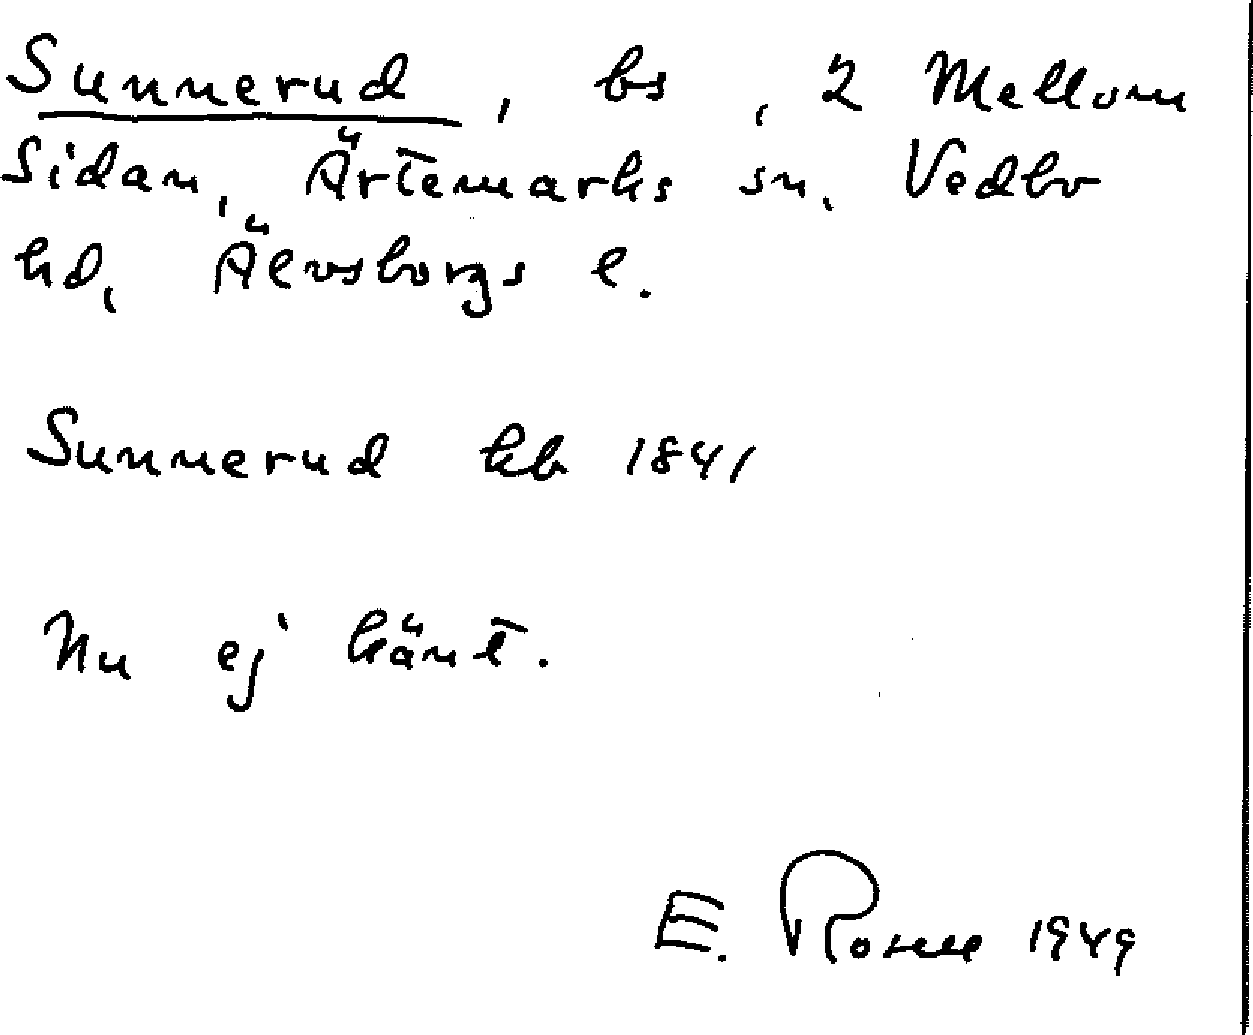 Sunnerud, bs, 2 Mellom
Sidan, Ärtemarks sn. Vedbo
hd, Älvsborgs l.
Sunnerud kb 1841
Nu ej känt.
E. 1949